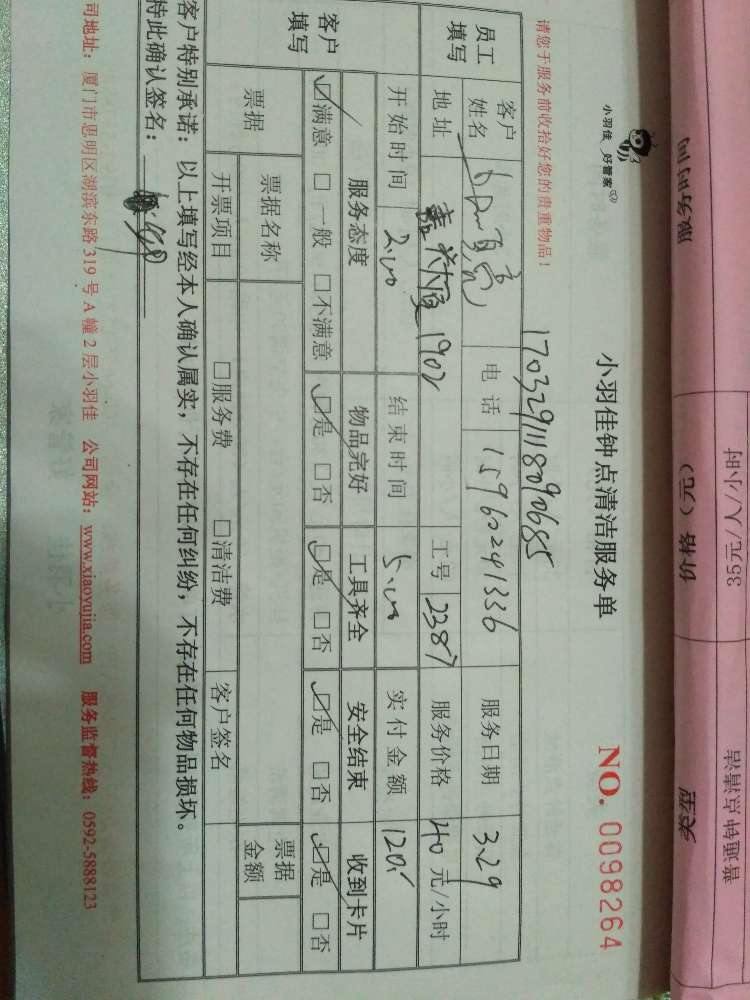 小羽佳 好管家
小羽佳钟点清洁服务单
NO. 0098264
请您于服务前收拾好您的贵重物品！
1703291118090685
员工填写
客户姓名 电话 15960241336 服务日期 3.29
地址 嘉英大厦1902 工号 2287 服务价格 40 元/小时
开始时间 2:00 结束时间 5:00 实付金额 120.
客户填写
服务态度 物品完好 工具齐全 安全结束 收到卡片
☑满意 □一般 □不满意 ☑是 □否 ☑是 □否 ☑是 □否 ☑是 □否
票据 票据名称 票据金额
开票项目 □服务费 □清洁费 客户签名
客户特别承诺：以上填写经本人确认属实，不存在任何纠纷，不存在任何物品损坏。
特此确认签名：
司地址：厦门市思明区湖滨东路 319 号 A 幢 2 层小羽佳 公司网站：www.xiaoyujia.com 服务监督热线：0592-5888123
服务时间 价格（元） 类型
35元/人/小时 普通钟点清洁